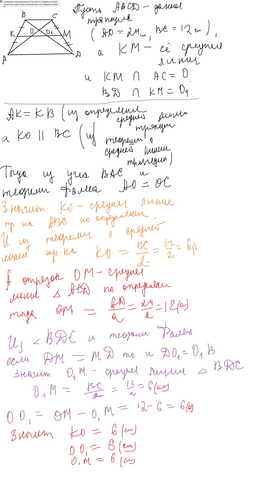 B C
K O O₁ M
A D
Пусть ABCD - данная
трапеция
(AD = 24 см, BC = 12 см),
а KM - её средняя
линия
и KM ∩ AC = O
BD ∩ KM = O₁
AK = KB (из определения
средней линии
трапеции)
а KO || BC (из
теоремы о
средней линии
трапеции)
Тогда из угла BAC и
теоремы Фалеса AO = OC
Значит KO - средняя линия
тр-ка ABC по определению.
И из теоремы о средней
линии тр-ка KO = BC/2 = 12/2 = 6 (см)
А отрезок OM - средняя
линия △ ACD по определению
тогда OM = AD/2 = 24/2 = 12 (см)
Из ∠ BDC и теоремы Фалеса
если DM = MD то и DO₁ = O₁B
Значит O₁M - средняя линия △ BDC
O₁M = BC/2 = 12/2 = 6 (см)
OO₁ = OM - O₁M = 12 - 6 = 6 (см)
Значит KO = 6 (см)
OO₁ = 6 (см)
O₁M = 6 (см)